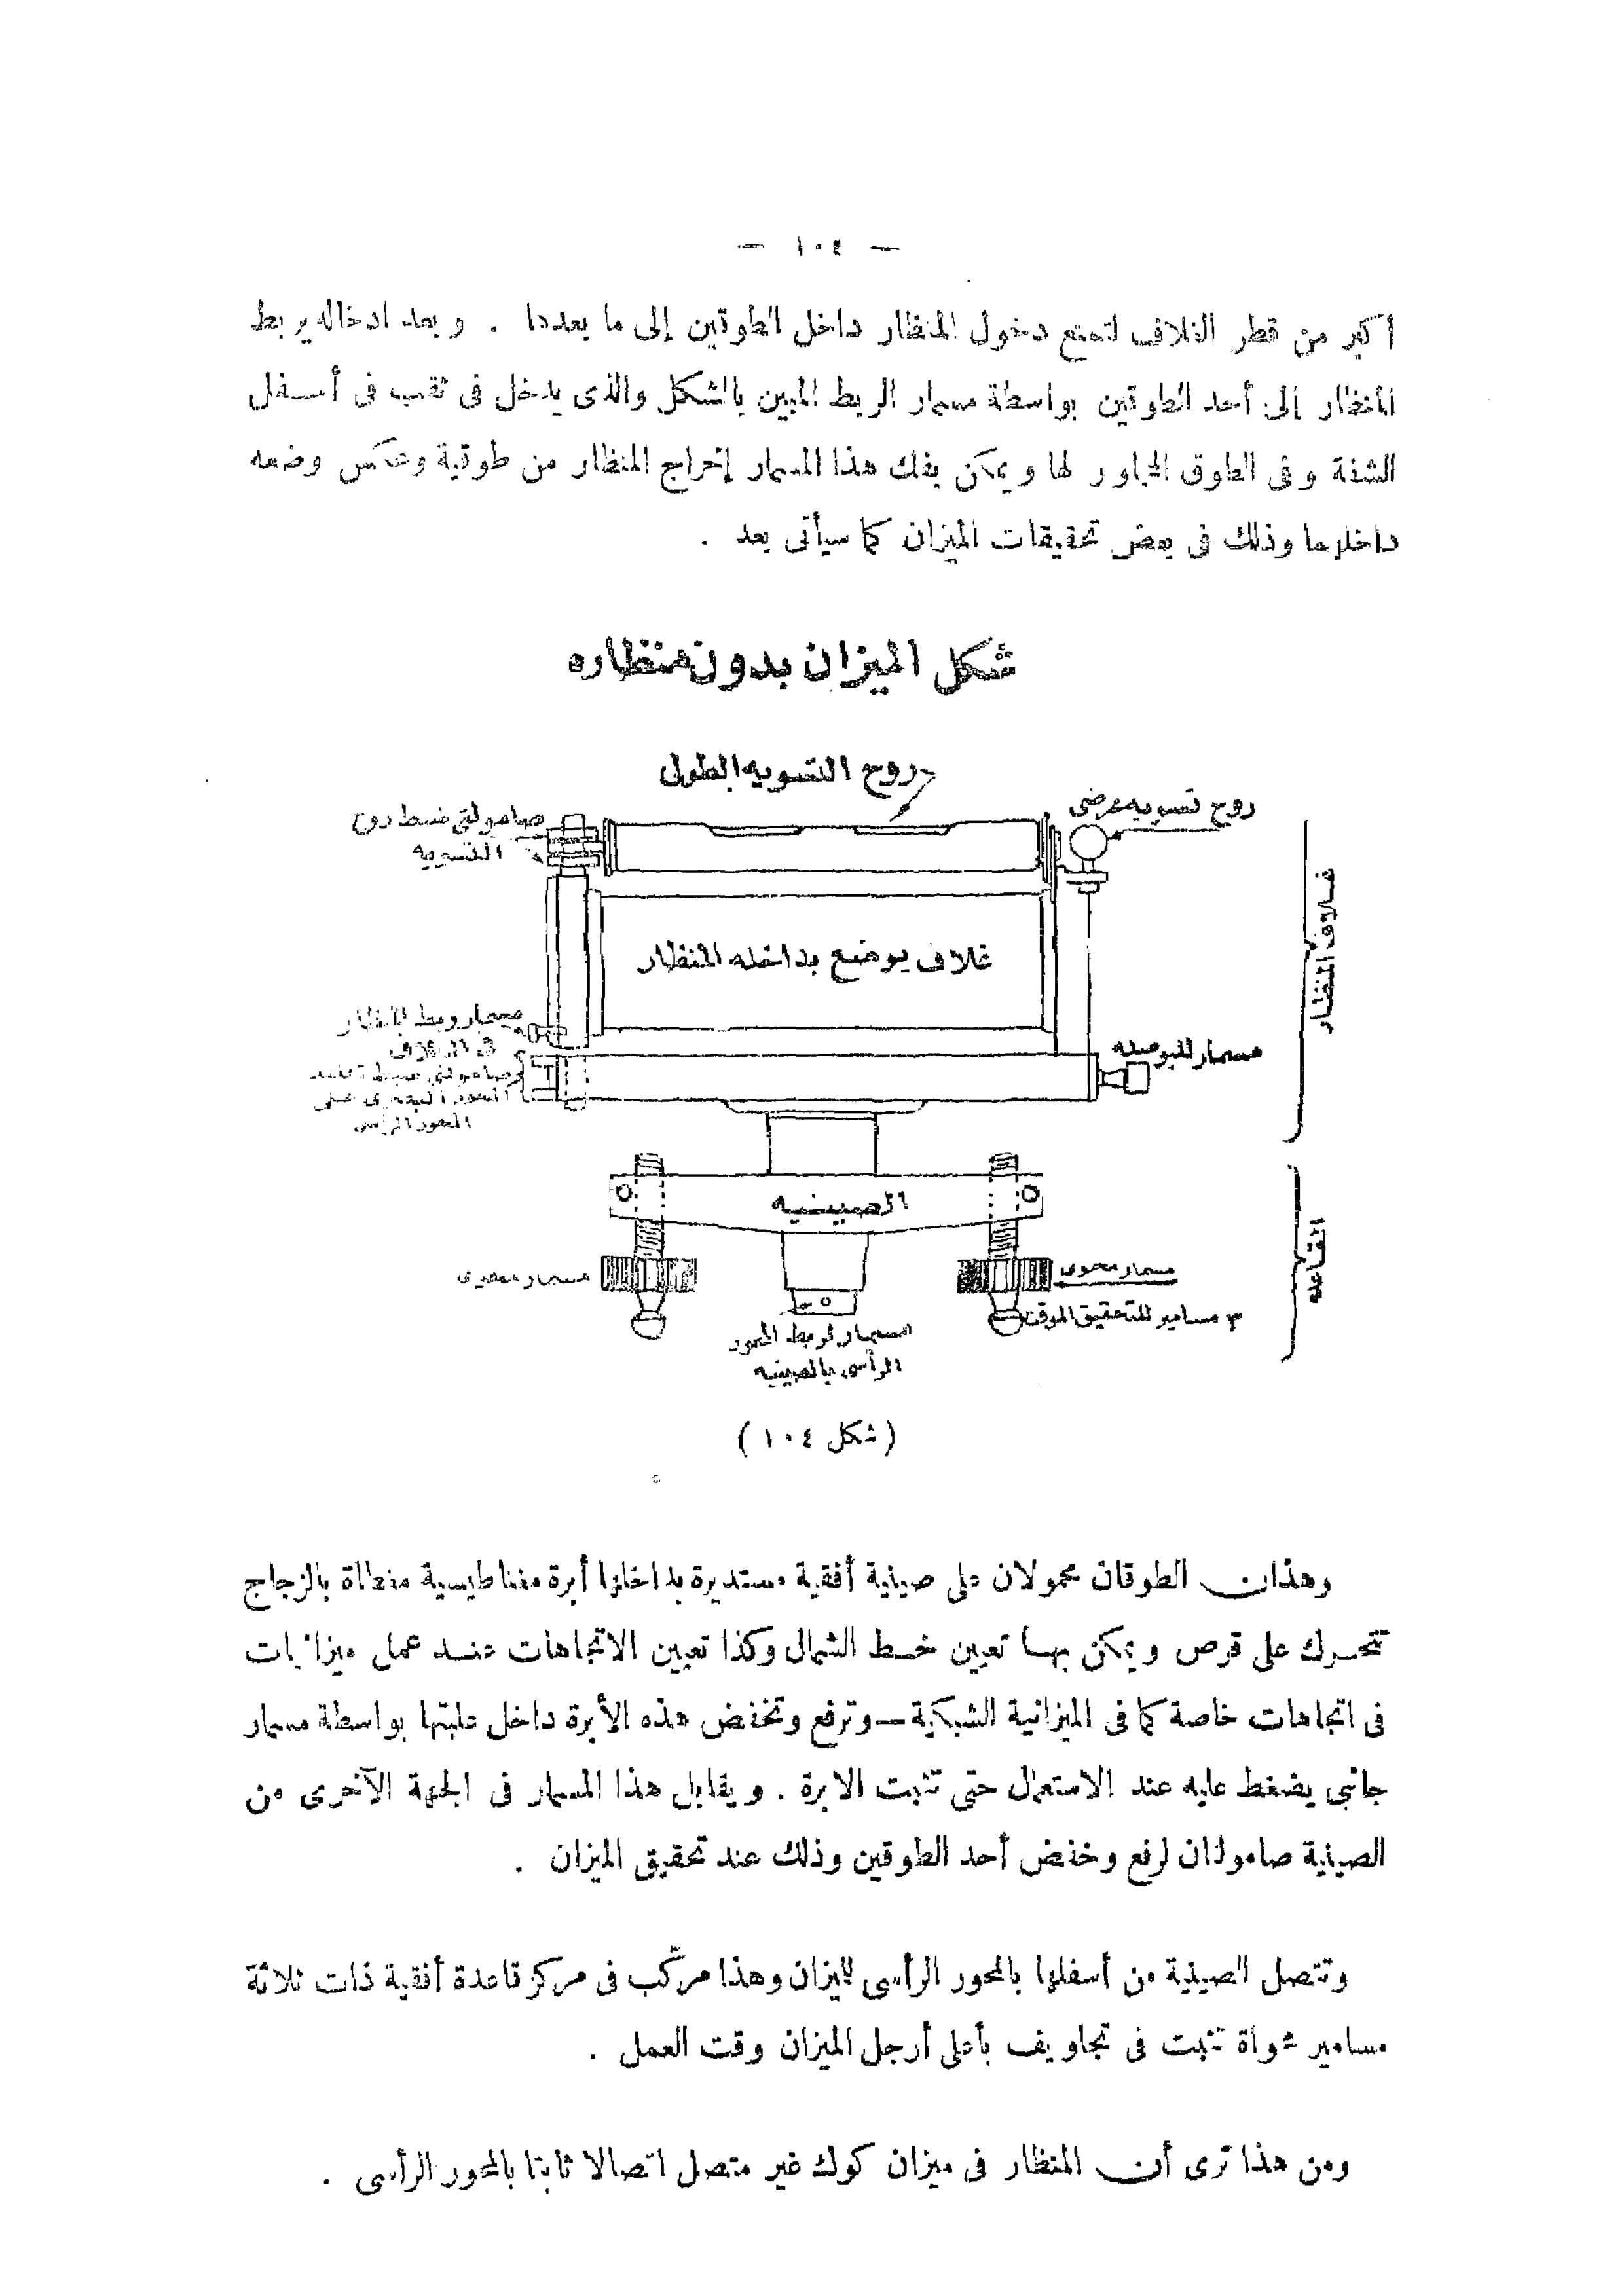 — ١٠٤ —
أكبر من قطر الغلاف لتمنع دخول المنظار داخل الطوقين إلى ما بعدها . وبعد ادخاله يربط
المنظار إلى أحد الطوقين بواسطة مسمار الربط المبين بالشكل والذى يدخل فى ثقب فى أسفل
الشفة وفى الطوق المجاور لها ويمكن بفك هذا المسمار إخراج المنظار من طوقية وعكس وضعه
داخلهما وذلك فى بعض تحقيقات الميزان كما سيأتى بعد .
شكل الميزان بدون منظاره
روح التسويه الطولى
روح تسويه عرضى
صامولتى ضبط روح
التسويه
غلاف المنظار
غلاف يوضع بداخله المنظار
مسمار ربط المنظار
فى الغلاف
مسمار للبوصله
صامولتى ضبط تعامد
المحور البصرى على
المحور الرأسى
الصينيه
القاعده
مسمار محوى
مسمار محوى
٣ مسامير للتحقيق الموقت
مسمار لربط المحور
الرأسى بالصينيه
(شكل ١٠٤)
وهذان الطوقان محمولان على صينية أفقية مستديرة بداخلها أبرة مغناطيسية مغطاة بالزجاج
تتحرك على قرص ويمكن بها تعيين خط الشمال وكذا تعيين الاتجاهات عند عمل ميزانيات
فى اتجاهات خاصة كما فى الميزانية الشبكية — وترفع وتخفض هذه الأبرة داخل علبتها بواسطة مسمار
جانبى يضغط عليه عند الاستعمال حتى تثبت الابرة . ويقابل هذا المسمار فى الجهة الآخرى من
الصينية صامولتان لرفع وخفض أحد الطوقين وذلك عند تحقيق الميزان .
وتتصل الصينية من أسفلها بالمحور الرأسى للميزان وهذا مركّب فى مركز قاعدة أفقية ذات ثلاثة
مسامير محواة تثبت فى تجاويف بأعلى أرجل الميزان وقت العمل .
ومن هذا ترى أن المنظار فى ميزان كوك غير متصل اتصالا ثابتا بالمحور الرأسى .